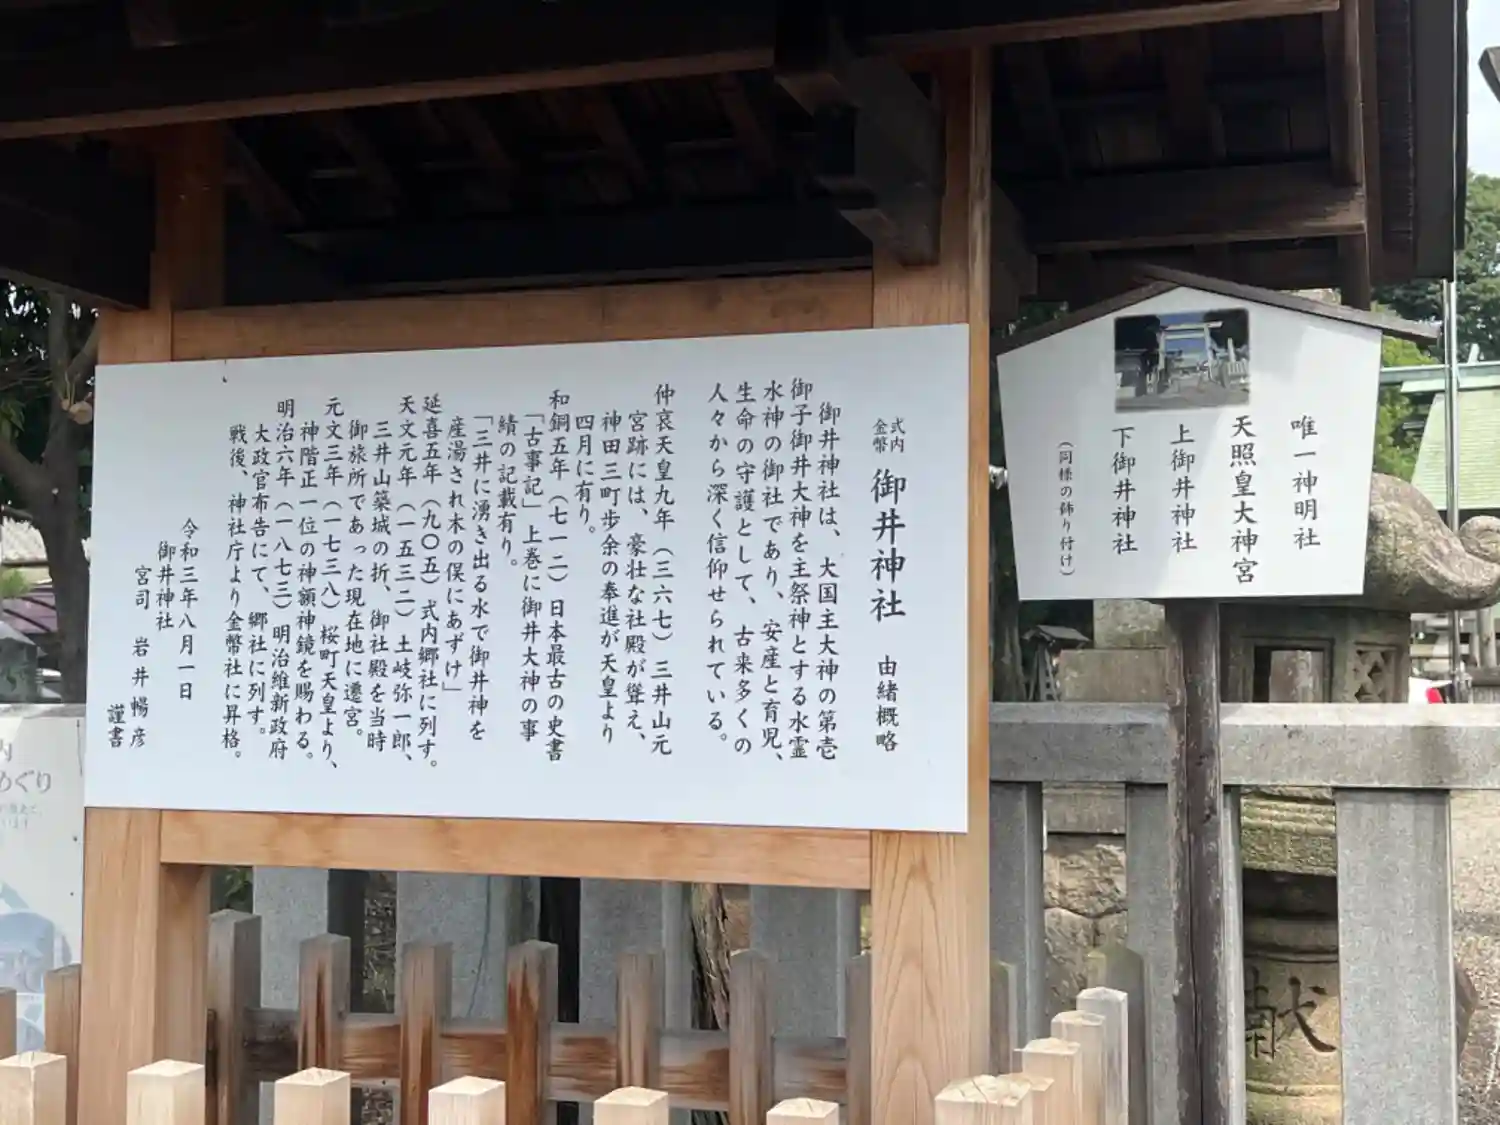 式内
金幣
御井神社 由緒概略
御井神社は、大国主大神の第壱
御子御井大神を主祭神とする水霊
水神の御社であり、安産と育児、
生命の守護として、古来多くの
人々から深く信仰せられている。
仲哀天皇九年(三六七)三井山元
宮跡には、豪壮な社殿が聳え、
神田三町歩余の奉進が天皇より
四月に有り。
和銅五年(七一二)日本最古の史書
「古事記」上巻に御井大神の事
績の記載有り。
「三井に湧き出る水で御井神を
産湯され木の俣にあずけ」
延喜五年(九〇五)式内郷社に列す。
天文元年(一五三二)土岐弥一郎、
三井山築城の折、御社殿を当時
御旅所であった現在地に遷宮。
元文三年(一七三八)桜町天皇より、
神階正一位の神額神鏡を賜わる。
明治六年(一八七三)明治維新政府
大政官布告にて、郷社に列す。
戦後、神社庁より金幣社に昇格。
令和三年八月一日
御井神社
宮司 岩井暢彦
謹書
唯一神明社
天照皇大神宮
上御井神社
下御井神社
(同様の飾り付け)
内
めぐり
献